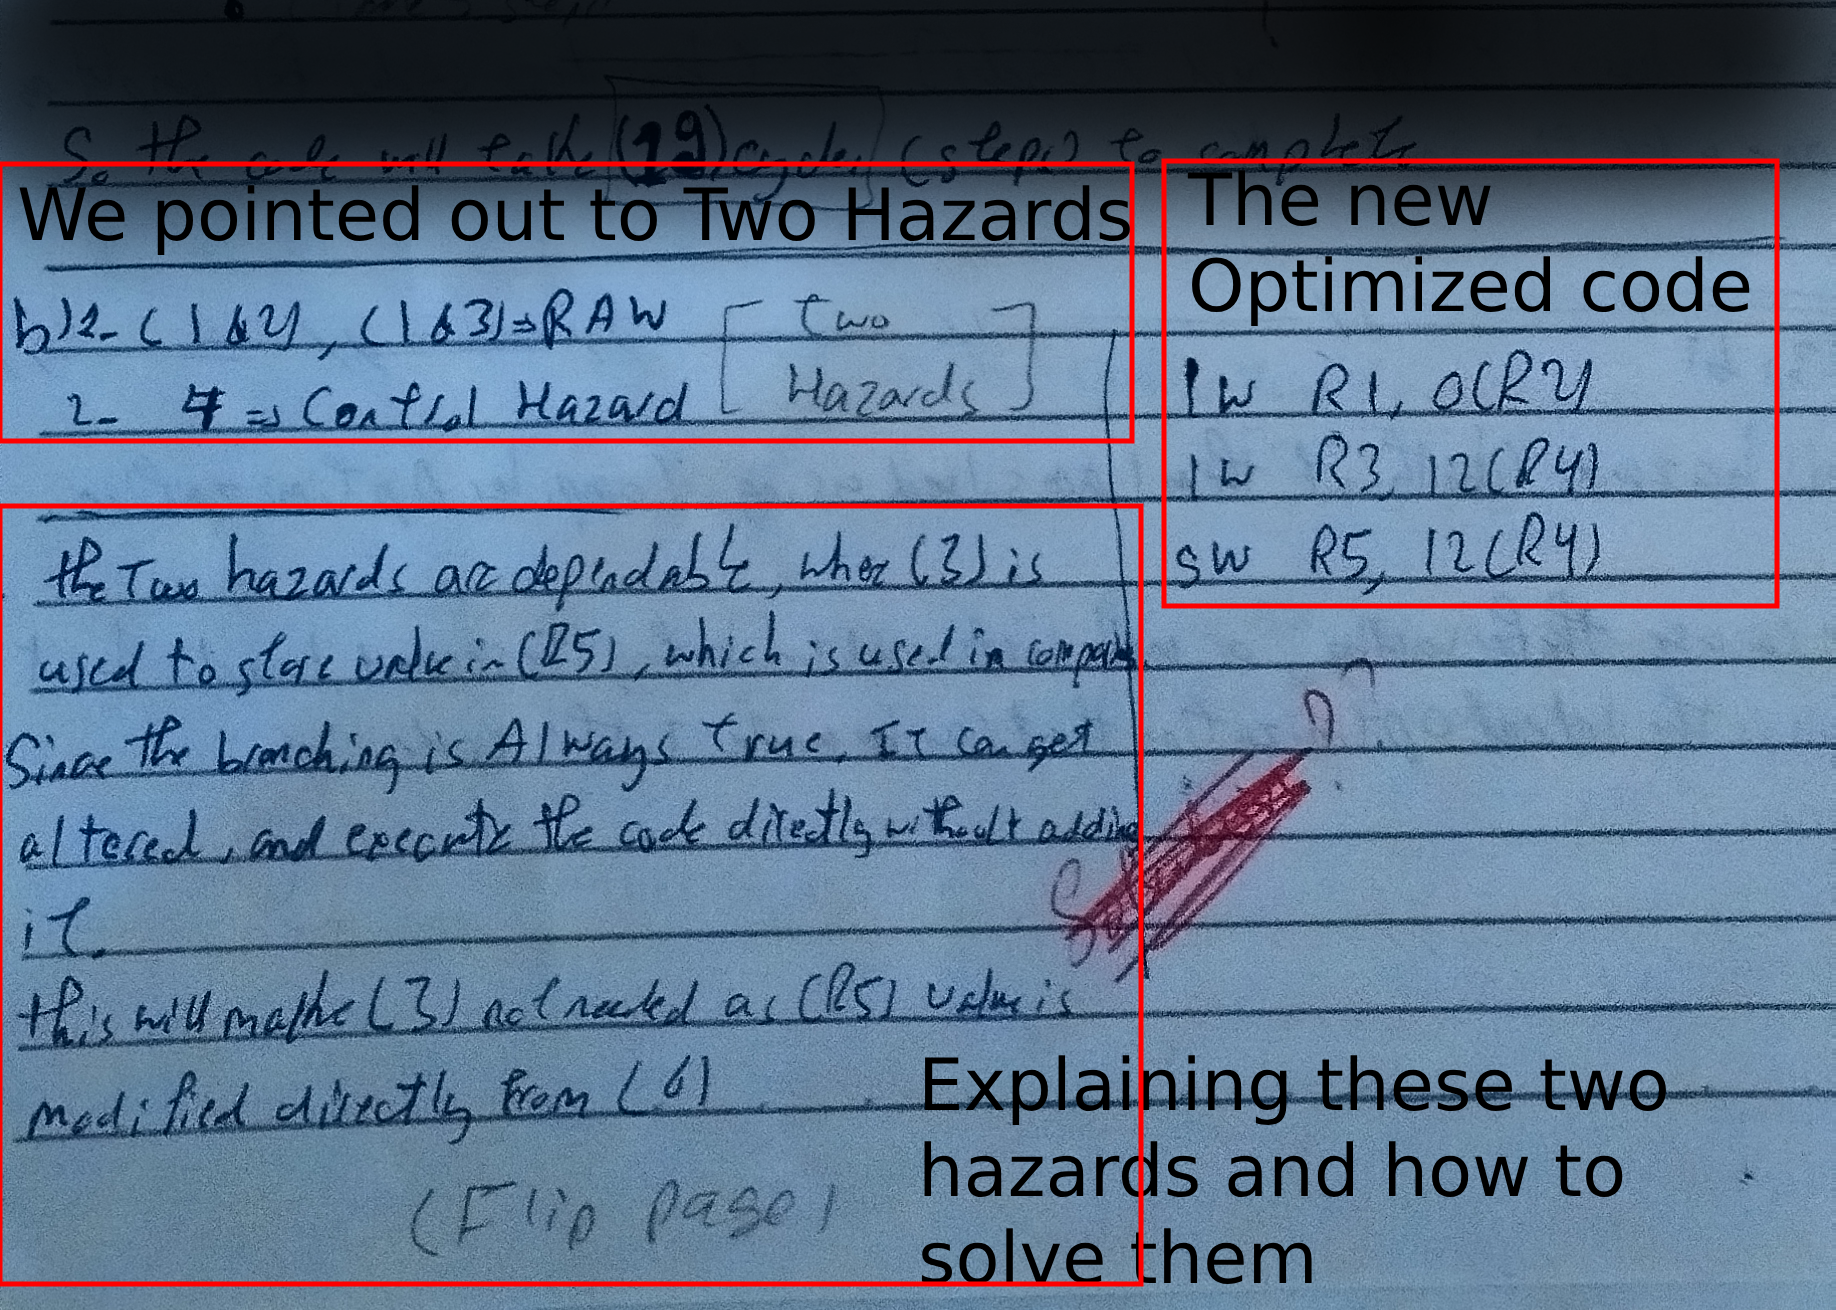 So the code will take (19) cycles (steps) to complete
We pointed out to Two Hazards
b) 1- (1 & 2), (1 & 3) => RAW
2- 4 => Control Hazard
[Two
Hazards]
The new
Optimized code
lw R1, 0(R2)
lw R3, 12(R4)
sw R5, 12(R4)
the Two hazards are dependable, wher (3) is
used to store value in (R5), which is used in
Since the branching is Always true, It can get
altered, and execute the code directly without adding
it.
this will make (3) not needed as (R5) value is
modified directly from (6)
(Flip page)
Explaining these two
hazards and how to
solve them